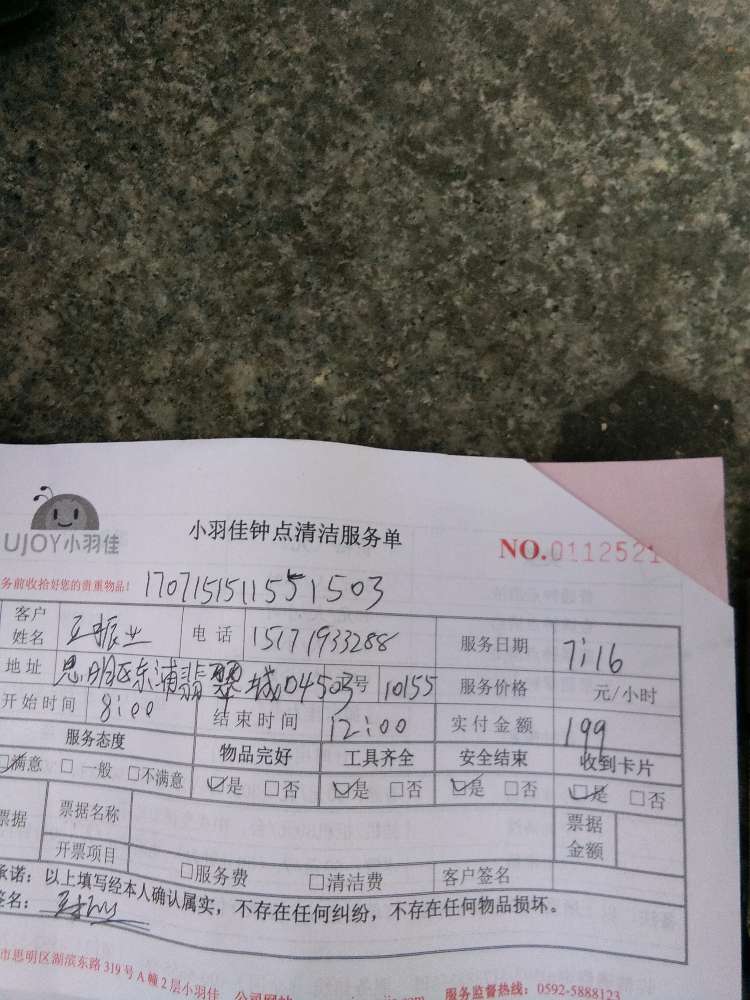 UJOY小羽佳
小羽佳钟点清洁服务单
NO.0112521
务前收拾好您的贵重物品! 170715151155 1503
客户姓名 振业 电话 15171933288 服务日期 7:16
地址 思明区东浦翡翠城04503号 10155 服务价格 元/小时
开始时间 8:00 结束时间 12:00 实付金额 199
服务态度 物品完好 工具齐全 安全结束 收到卡片
☑满意 □一般 □不满意 ☑是 □否 ☑是 □否 ☑是 □否 ☑是 □否
票据 票据名称 票据金额
开票项目 □服务费 □清洁费 客户签名
承诺:以上填写经本人确认属实,不存在任何纠纷,不存在任何物品损坏。
签名:
市思明区湖滨东路319号A幢2层小羽佳 公司网站 服务监督热线:0592-5888123